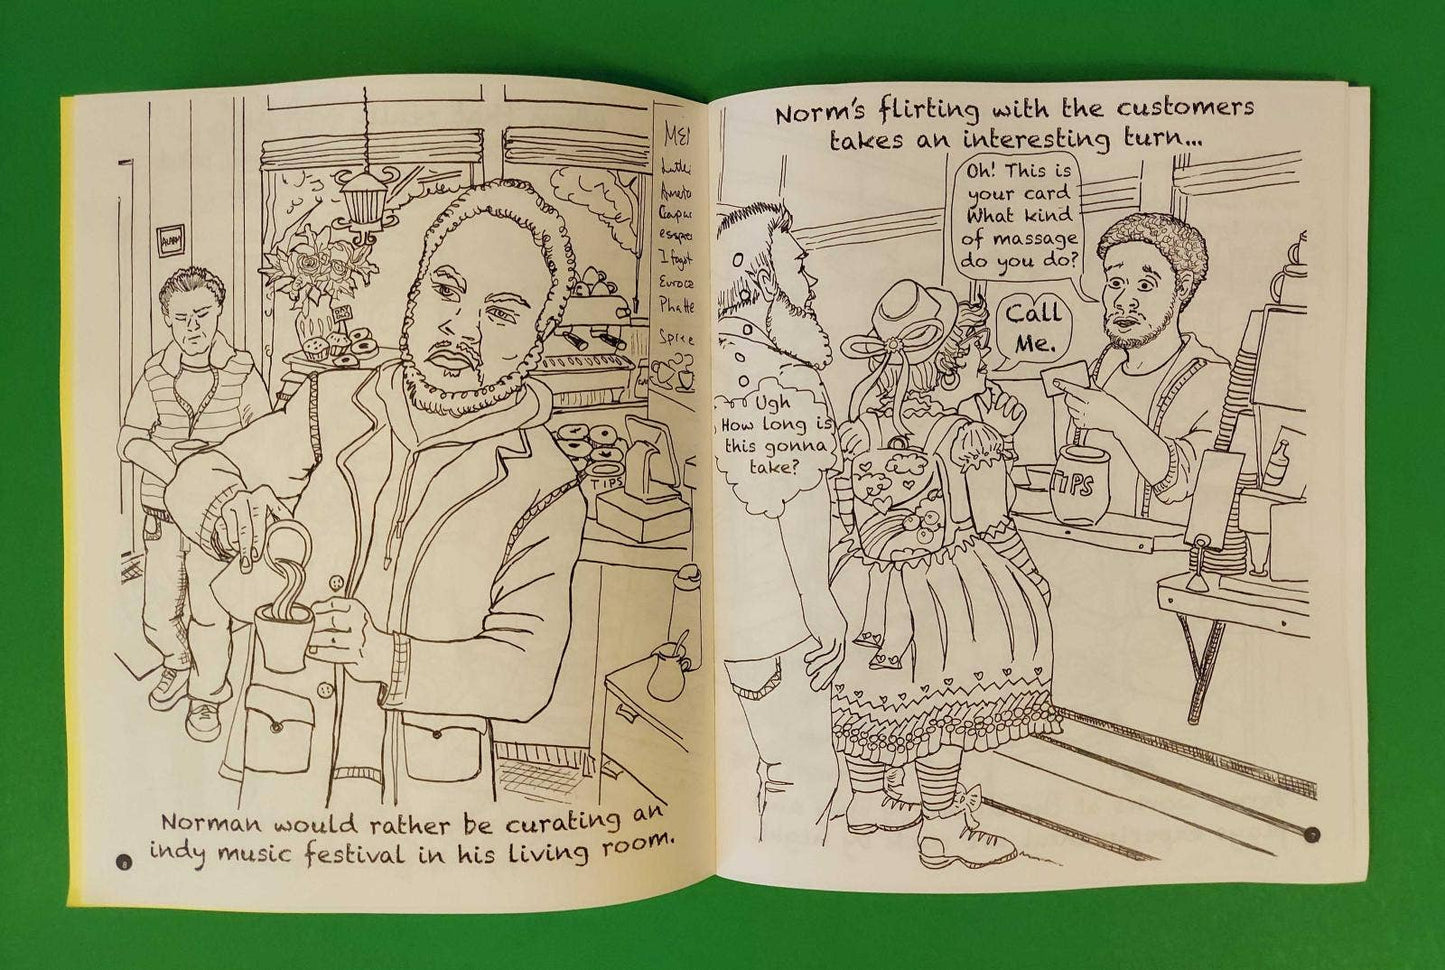 ALARM
DAY
OLD
TIPS
Espre
I fogot
Spice
Norman would rather be curating an
indy music festival in his living room.
8
Norm's flirting with the customers
takes an interesting turn...
Oh! This is
your card
What kind
of massage
do you do?
Call
Me.
Ugh
How long is
this gonna
take?
TIPS